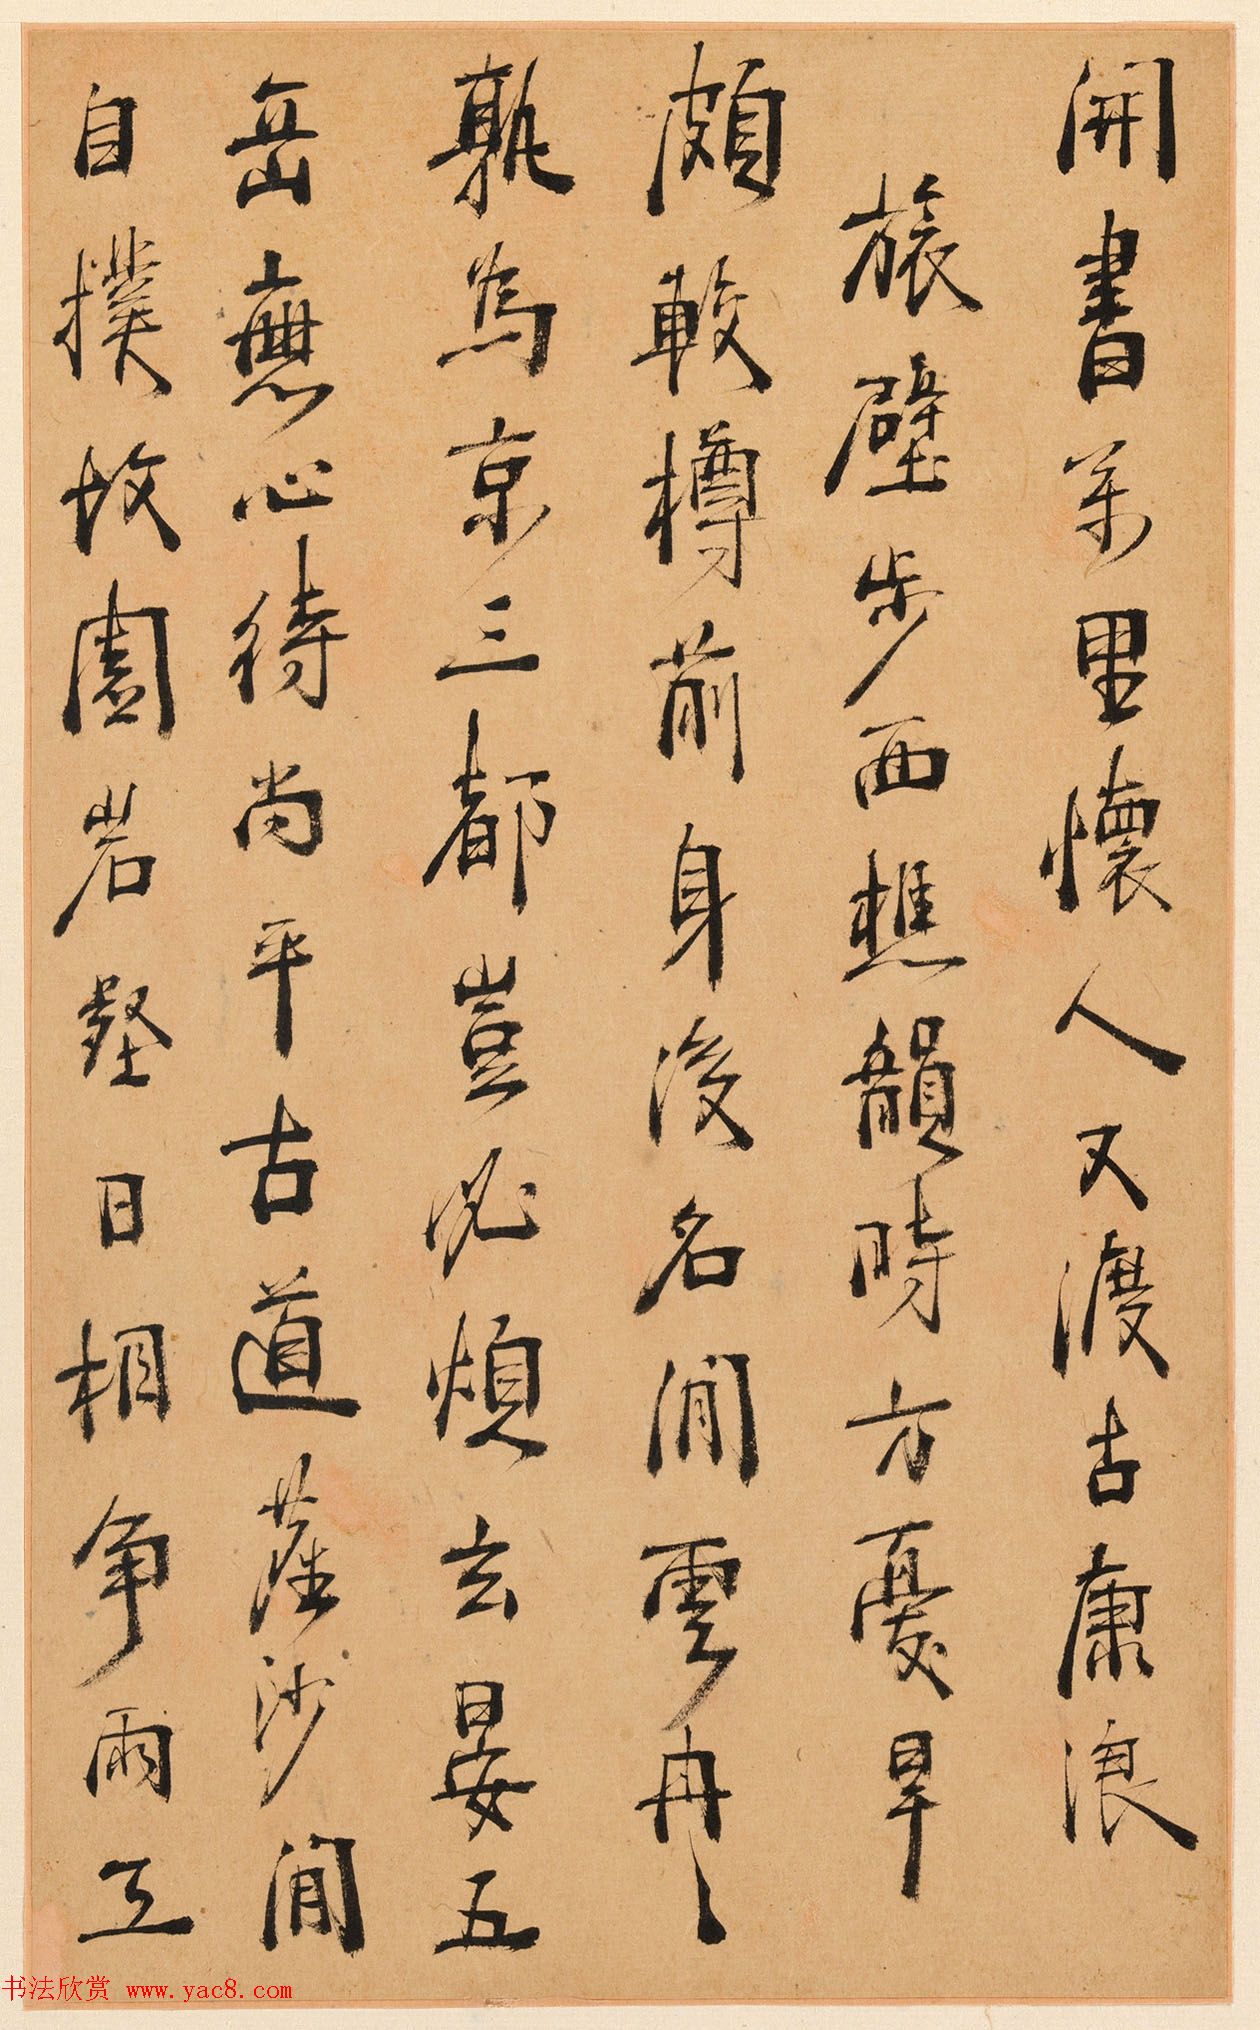 開書萬里懷人又渡古康浪
旅壁步西樵韻時方憂旱
頗較樽前身後名閒雲冉〻
孰為京三都豈必煩玄晏五
岳應心待尚平古道薩沙閒
自撲故園岩壑日相爭雨工
书法欣赏 www.yac8.com